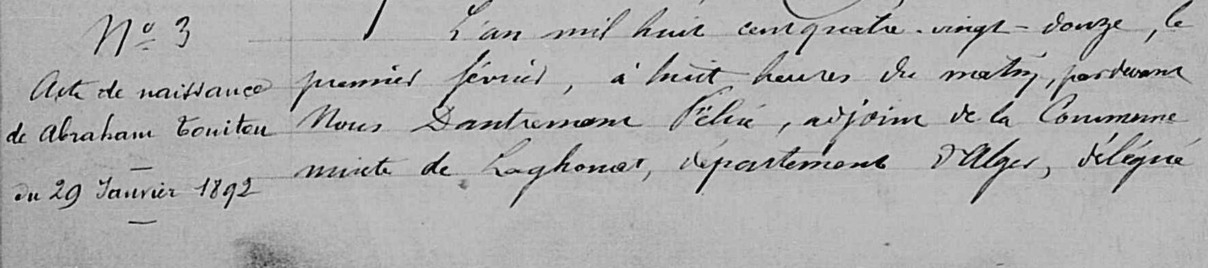 Nº 3
Acte de naissance
de Abraham Touitou
du 29 Janvier 1892
L'an mil huit cent quatre-vingt-douze, le
premier février, à huit heures du matin, pardevant
Nous Dantremont Félix, adjoint de la Commune
mixte de Laghouat, département d'Alger, délégué